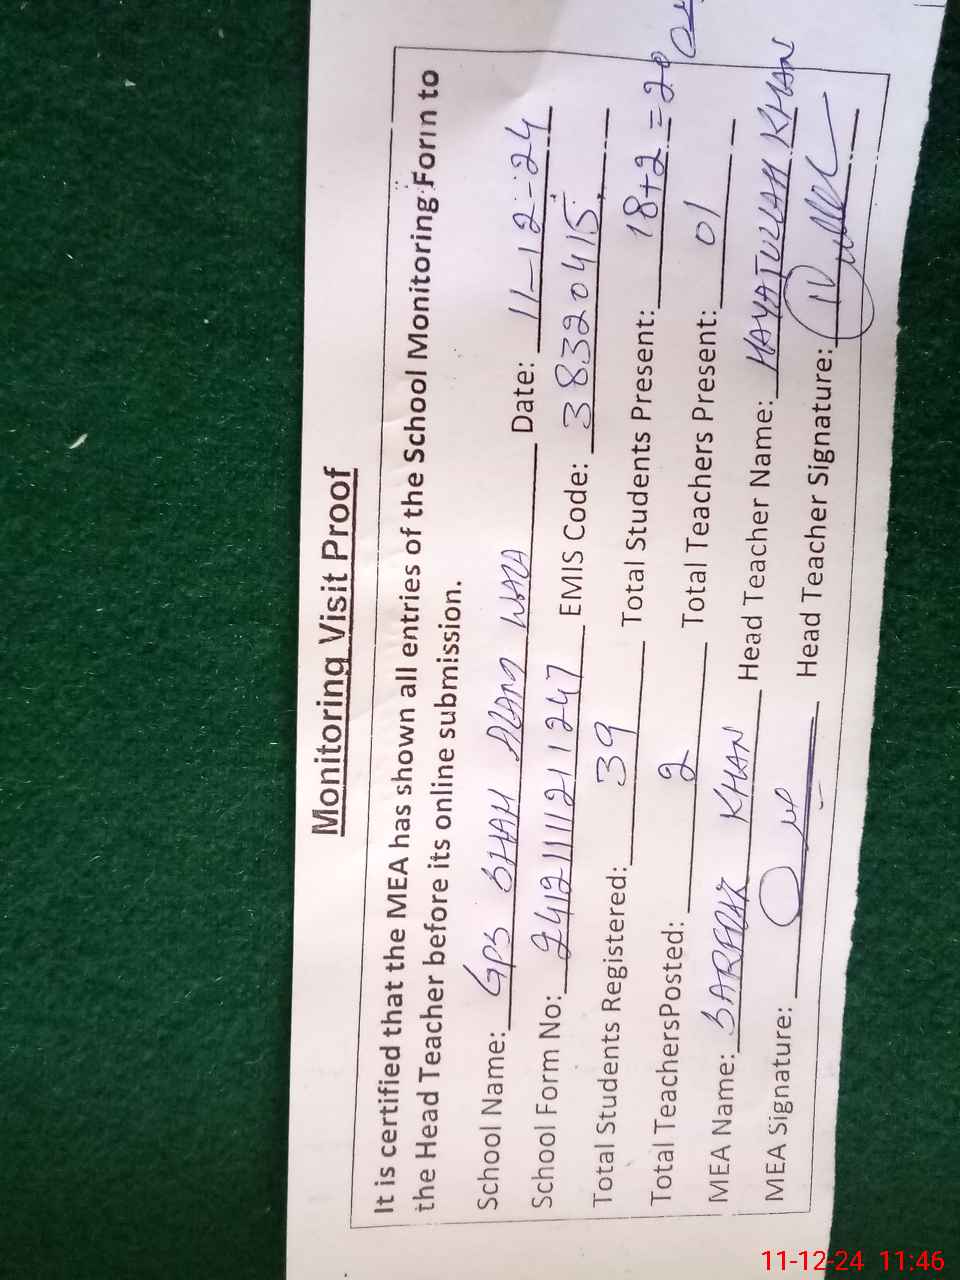 Monitoring Visit Proof
It is certified that the MEA has shown all entries of the School Monitoring Form to
the Head Teacher before its online submission.
School Name: GPS SHAH ALAM WAZA Date: 11-12-24
School Form No: 24121111211247 EMIS Code: 38320415
Total Students Registered: 39 Total Students Present: 18+2=20
Total TeachersPosted: 2 Total Teachers Present: 01
MEA Name: KHAN Head Teacher Name: HAYATULLAH KHAN
MEA Signature: Head Teacher Signature:
11-12-24 11:46